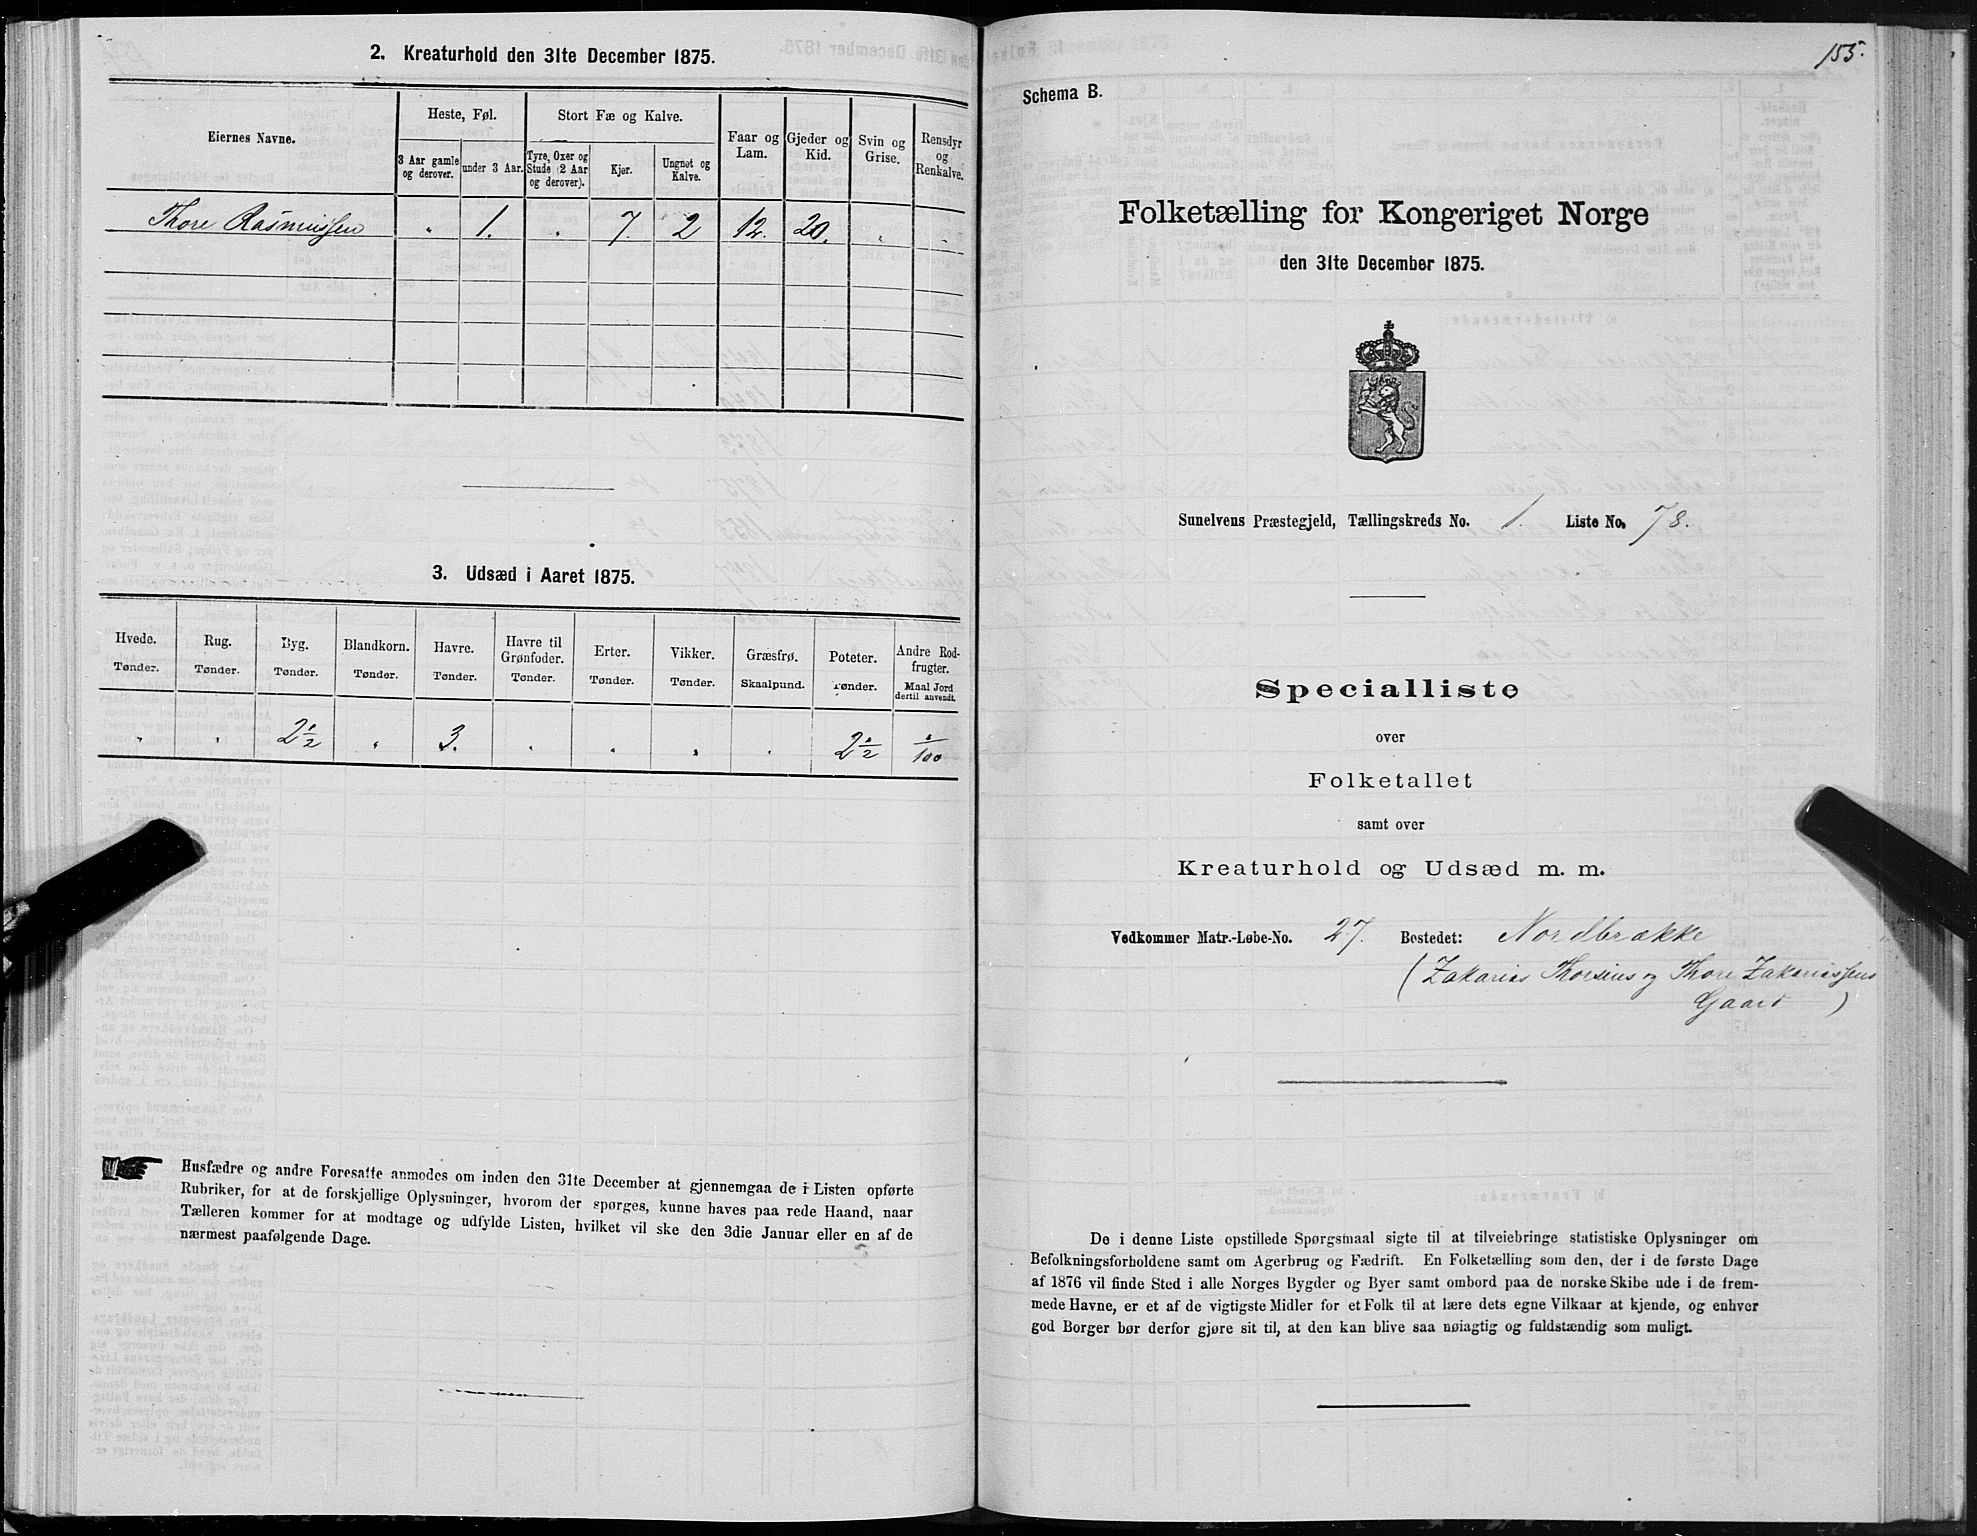 2. Kreaturhold den 31te December 1875.
Eiernes Navne.
Heste, Føl.
Stort Fæ og Kalve.
Faar og Lam.
Gjeder og Kid.
Svin og Grise.
Rensdyr og Renkalve.
3 Aar gamle og derover.
under 3 Aar.
Tyre, Oxer og Stude (2 Aar og derover).
Kjør.
Ungnøt og Kalve.
Thore Rasmussen " 1. " 7. 2 12. 20. " "
3. Udsæd i Aaret 1875.
Hvede. Rug. Byg. Blandkorn. Havre. Havre til Grønfoder. Erter. Vikker. Græsfrø. Poteter. Andre Rodfrugter.
Tønder. Tønder. Tønder. Tønder. Tønder. Tønder. Tønder. Tønder. Skaalpund. Tønder. Maal Jord dertil anvendt.
" " 2½ " 3. " " " " 2½ 1/100
Husfædre og andre Foresatte anmodes om inden den 31te December at gjennemgaa de i Listen opførte
Rubriker, for at de forskjellige Oplysninger, hvorom der spørges, kunne haves paa rede Haand, naar
Tælleren kommer for at modtage og udfylde Listen, hvilket vil ske den 3die Januar eller en af de
nærmest paafølgende Dage.
155.
Schema B.
Folketælling for Kongeriget Norge
den 31te December 1875.
Sunelvens Præstegjeld, Tællingskreds No. 1. Liste No. 78.
Specialliste
over
Folketallet
samt over
Kreaturhold og Udsæd m. m.
Vedkommer Matr.-Løbe-No. 27. Bostedet: Nordbrække
(Zakarias Thorsens og Thore Zakariassens
Gaard )
De i denne Liste opstillede Spørgsmaal sigte til at tilveiebringe statistiske Oplysninger om
Befolkningsforholdene samt om Agerbrug og Fædrift. En Folketælling som den, der i de første Dage
af 1876 vil finde Sted i alle Norges Bygder og Byer samt ombord paa de norske Skibe ude i de frem-
mede Havne, er et af de vigtigste Midler for et Folk til at lære dets egne Vilkaar at kjende, og enhver
god Borger bør derfor gjøre sit til, at den kan blive saa nøiagtig og fuldstændig som muligt.